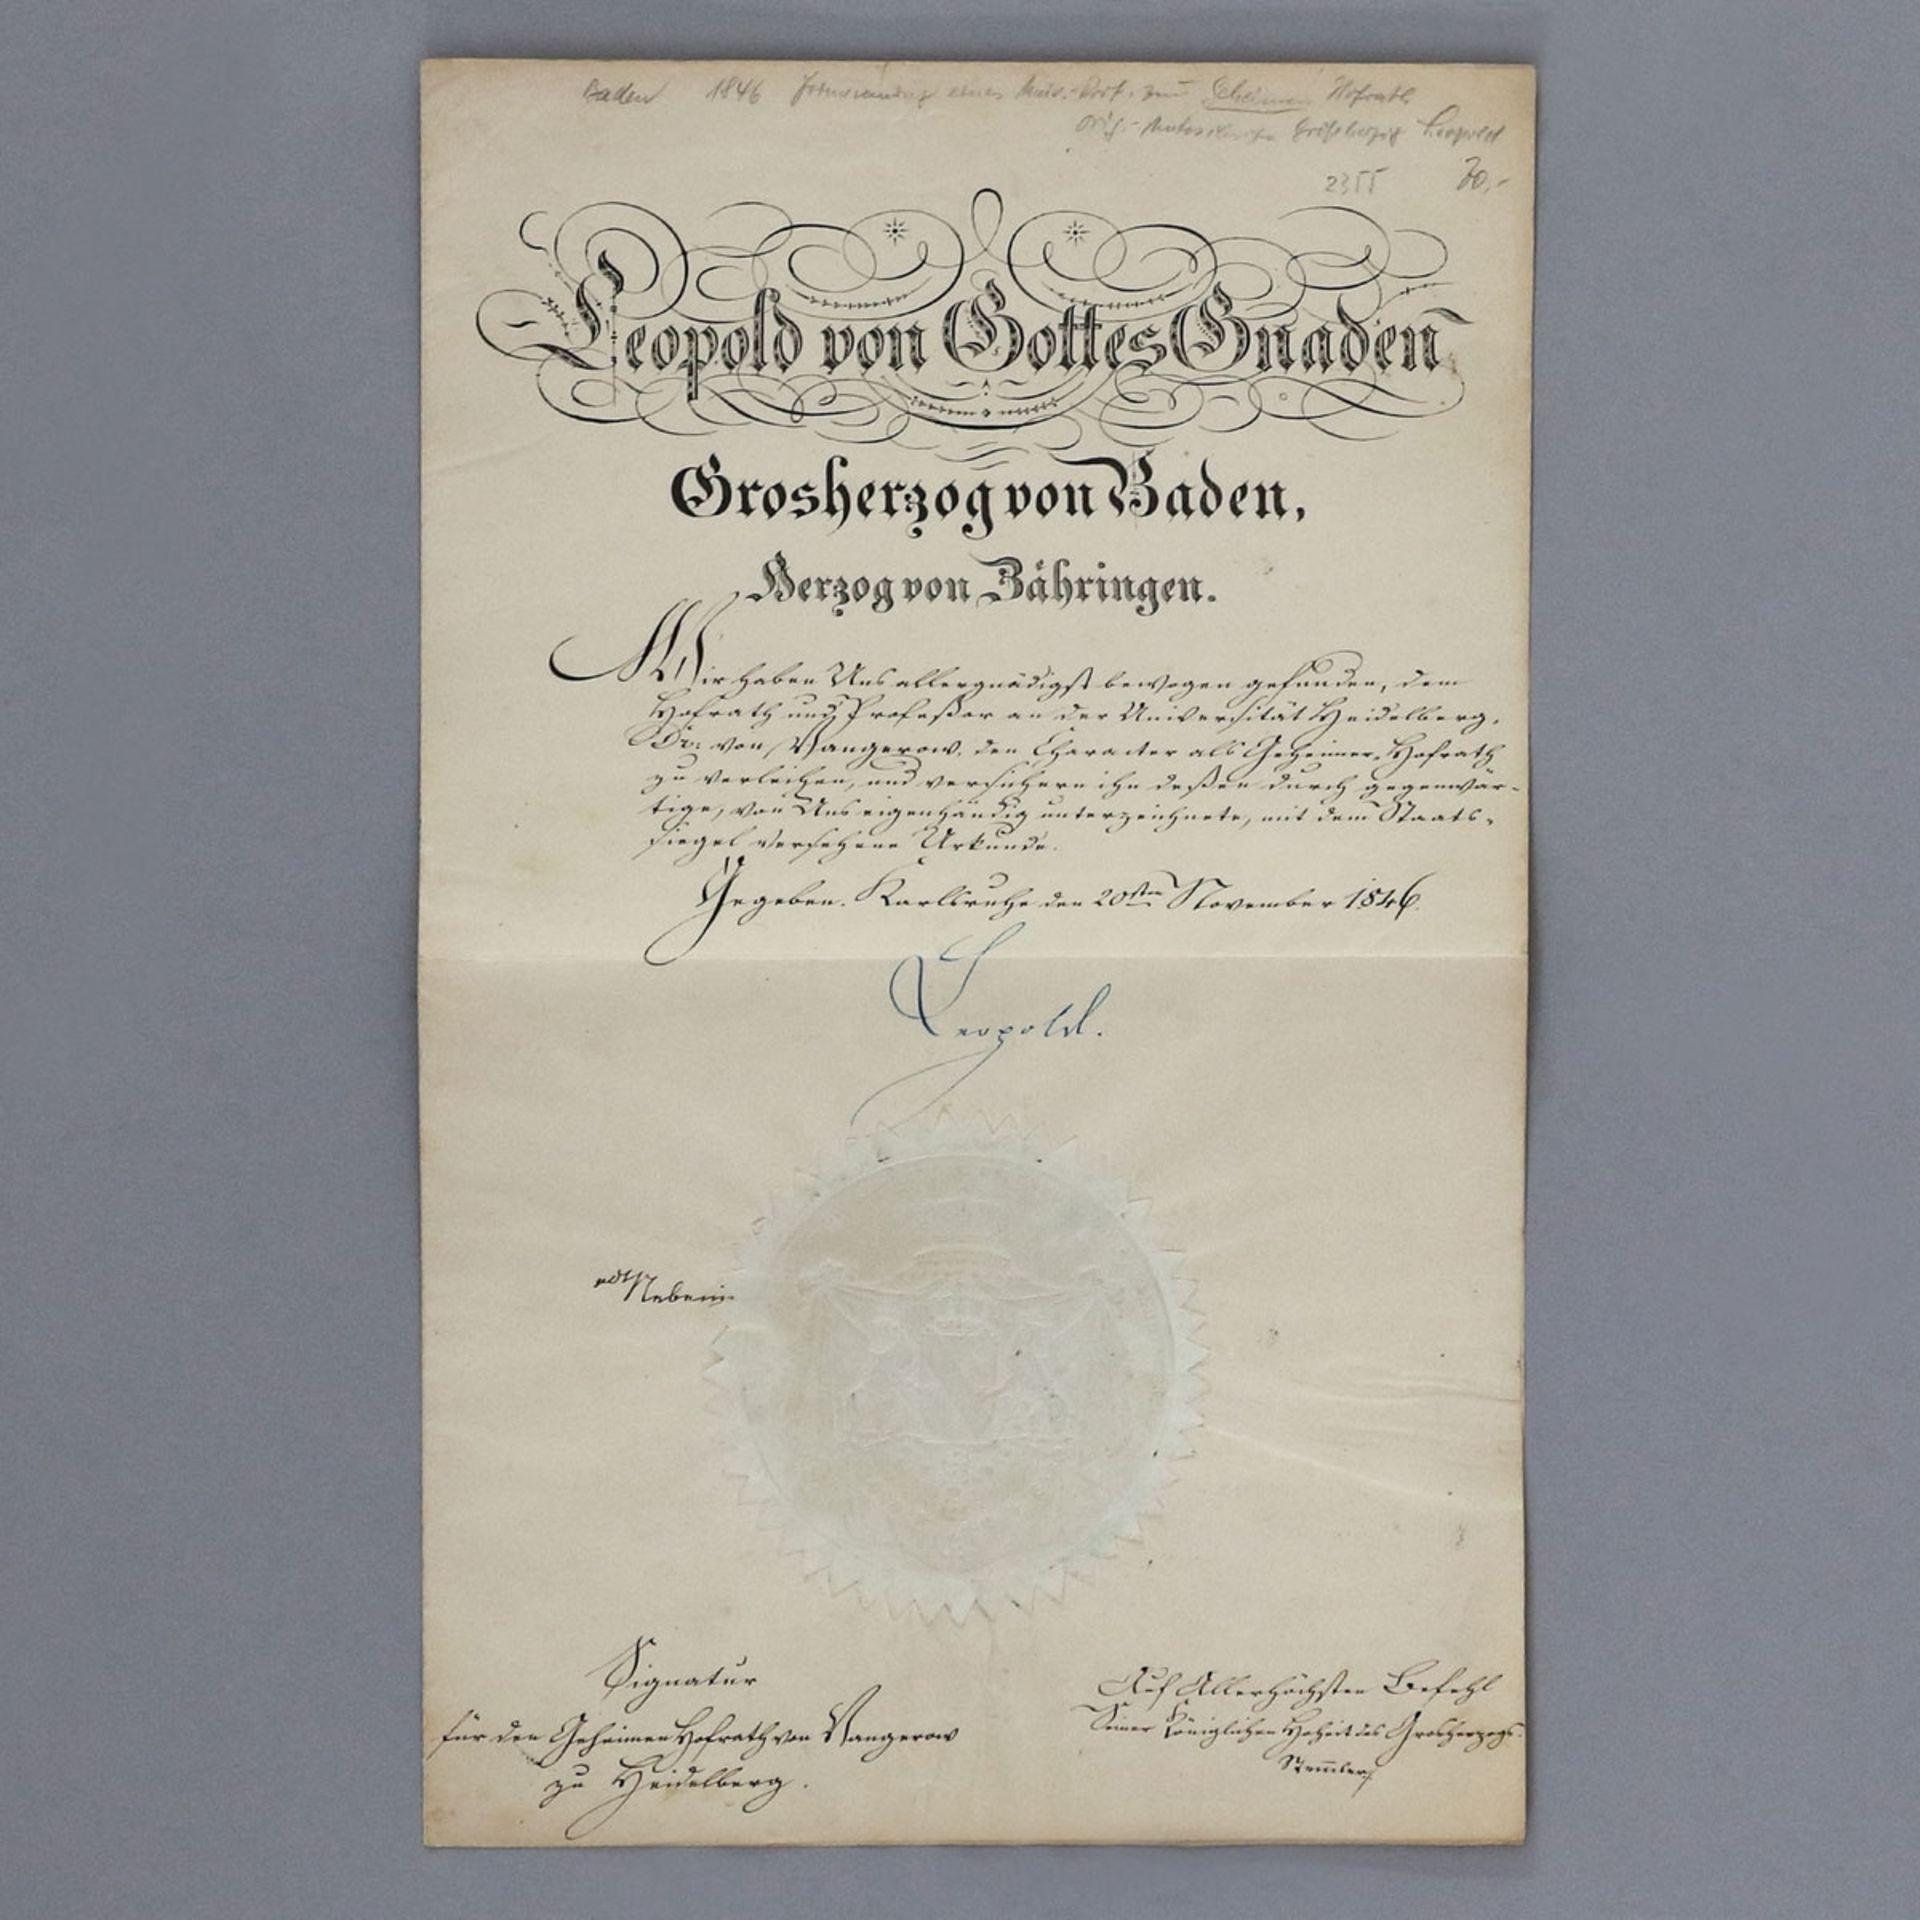 Baden 1846 Ernennung eines Univ.-Prof. zum Geheimen Hofrath
Orig.- Großherzog Leopold
2355 70,-
Leopold von Gottes Gnaden
Grosherzog von Baden,
Herzog von Zähringen.
Wir haben Uns allergnädigst bewogen gefunden, dem
Hofrath und Profeßor an der Universität Heidelberg,
Dr. von Vangerow, den Character als Geheimer-Hofrath
zu verleihen, und versichern ihn deßen durch gegenwär-
tige, von Uns eigenhändig unterzeichnete, mit dem Staats-
siegel versehene Urkunde.
Gegeben. Karlsruhe den 20sten November 1846.
Leopold.
vdt Nebenius
Signatur
für den Geheimen Hofrath von Vangerow
zu Heidelberg.
Auf Allerhöchsten Befehl
Seiner Königlichen Hoheit des Grosherzogs.